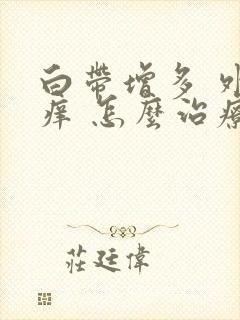 白帶增多 外
痒 怎麼治療
莊廷偉